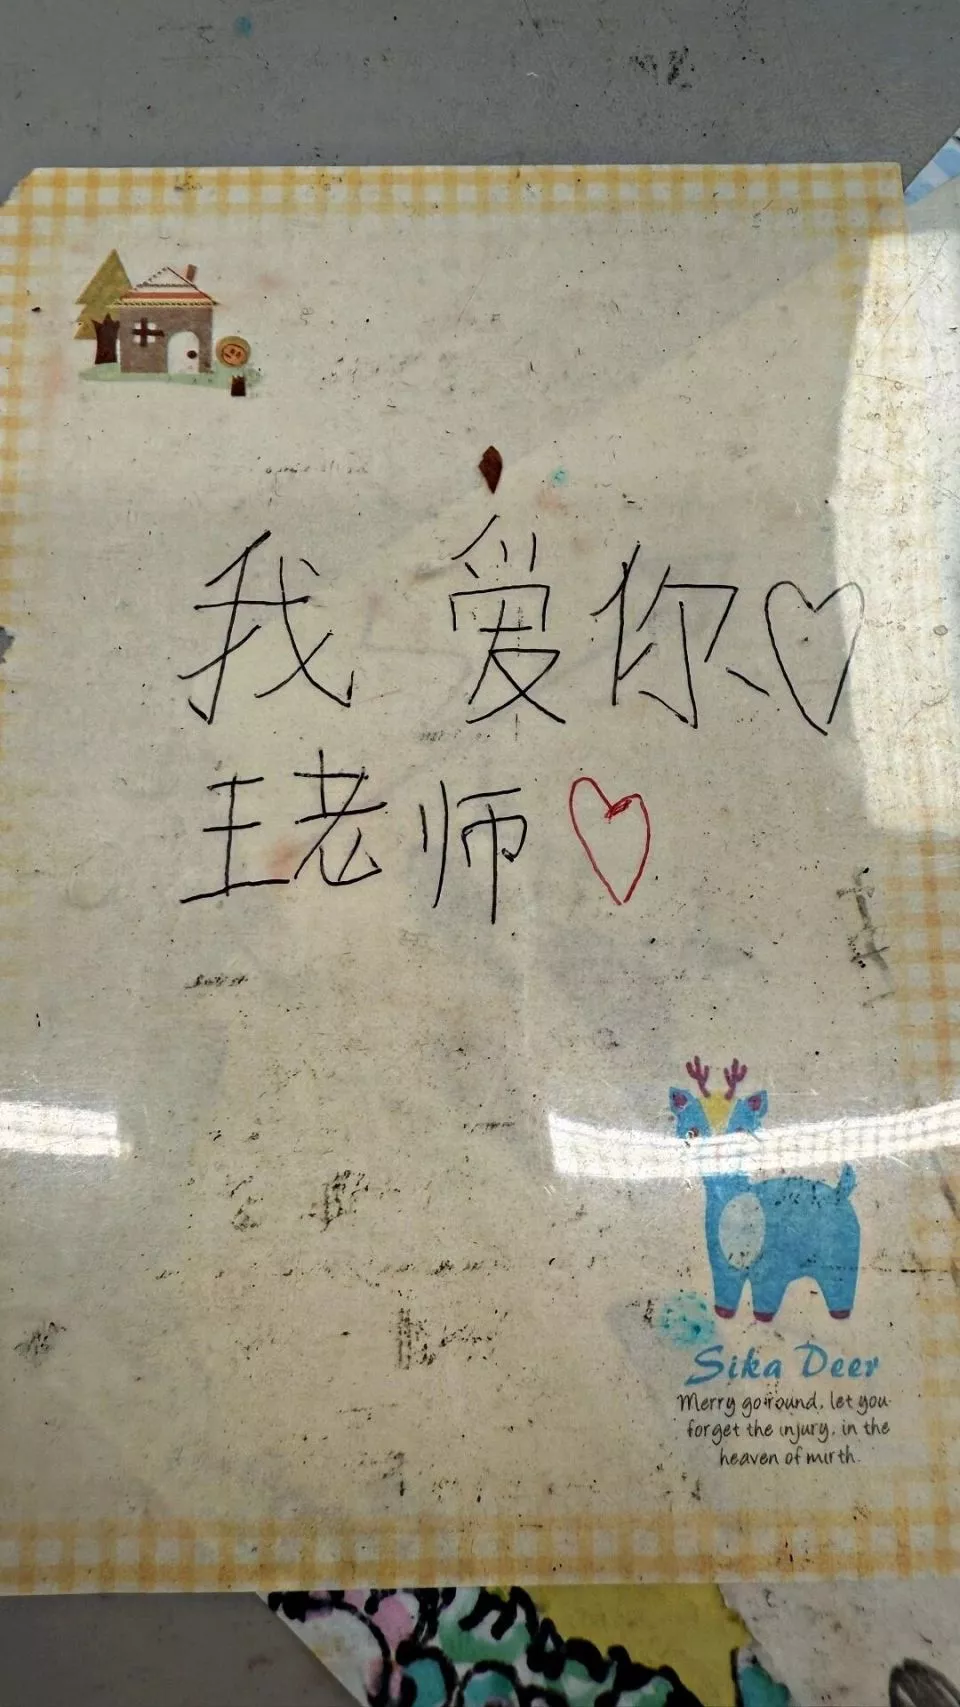 我爱你♡
王老师♡
Sika Deer
Merry go round, let you
forget the injury, in the
heaven of mirth.